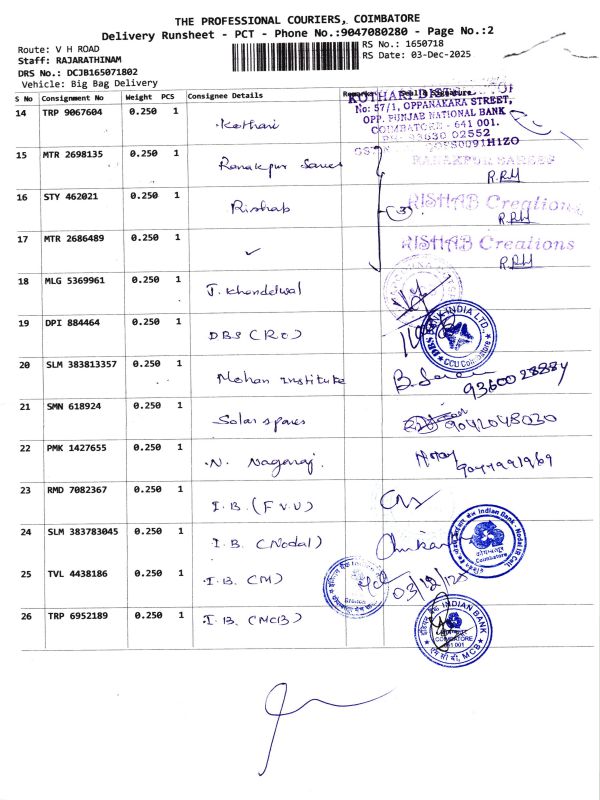 THE PROFESSIONAL COURIERS, COIMBATORE
Delivery Runsheet - PCT - Phone No.:9047080280 - Page No.:2
Route: V H ROAD
RS No.: 1650718
Staff: RAJARATHINAM
RS Date: 03-Dec-2025
DRS No.: DCJB165071802
Vehicle: Big Bag Delivery
S No Consignment No Weight PCS Consignee Details Remarks Seal & Signature
14 TRP 9067604 0.250 1 Kothari
KOTHARI
No: 57/1, OPPANAKARA STREET,
OPP. PUNJAB NATIONAL BANK
COIMBATORE - 641 001.
02552
15 MTR 2698135 0.250 1 Ranakpur Sarees RANAKPUR SAREES
16 STY 462021 0.250 1 Rishab (3) RISHAB Creations
17 MTR 2686489 0.250 1 ✓ RISHAB Creations
18 MLG 5369961 0.250 1 J. Khandelwal
19 DPI 884464 0.250 1 DBS (RO) DBS BANK INDIA LTD. CCU Coimbatore
20 SLM 383813357 0.250 1 Mohan institute 9360028884
21 SMN 618924 0.250 1 Solar spares 9042048030
22 PMK 1427655 0.250 1 N. Nagaraj
23 RMD 7082367 0.250 1 I.B. (F V U)
24 SLM 383783045 0.250 1 I.B. (Nodal) Indian Bank - Nodal Coimbatore
25 TVL 4438186 0.250 1 I.B. (M) 03/12/25
26 TRP 6952189 0.250 1 I.B. (MCB) इंडियन बैंक INDIAN BANK COIMBATORE 641 001 एम सी बी, MCB